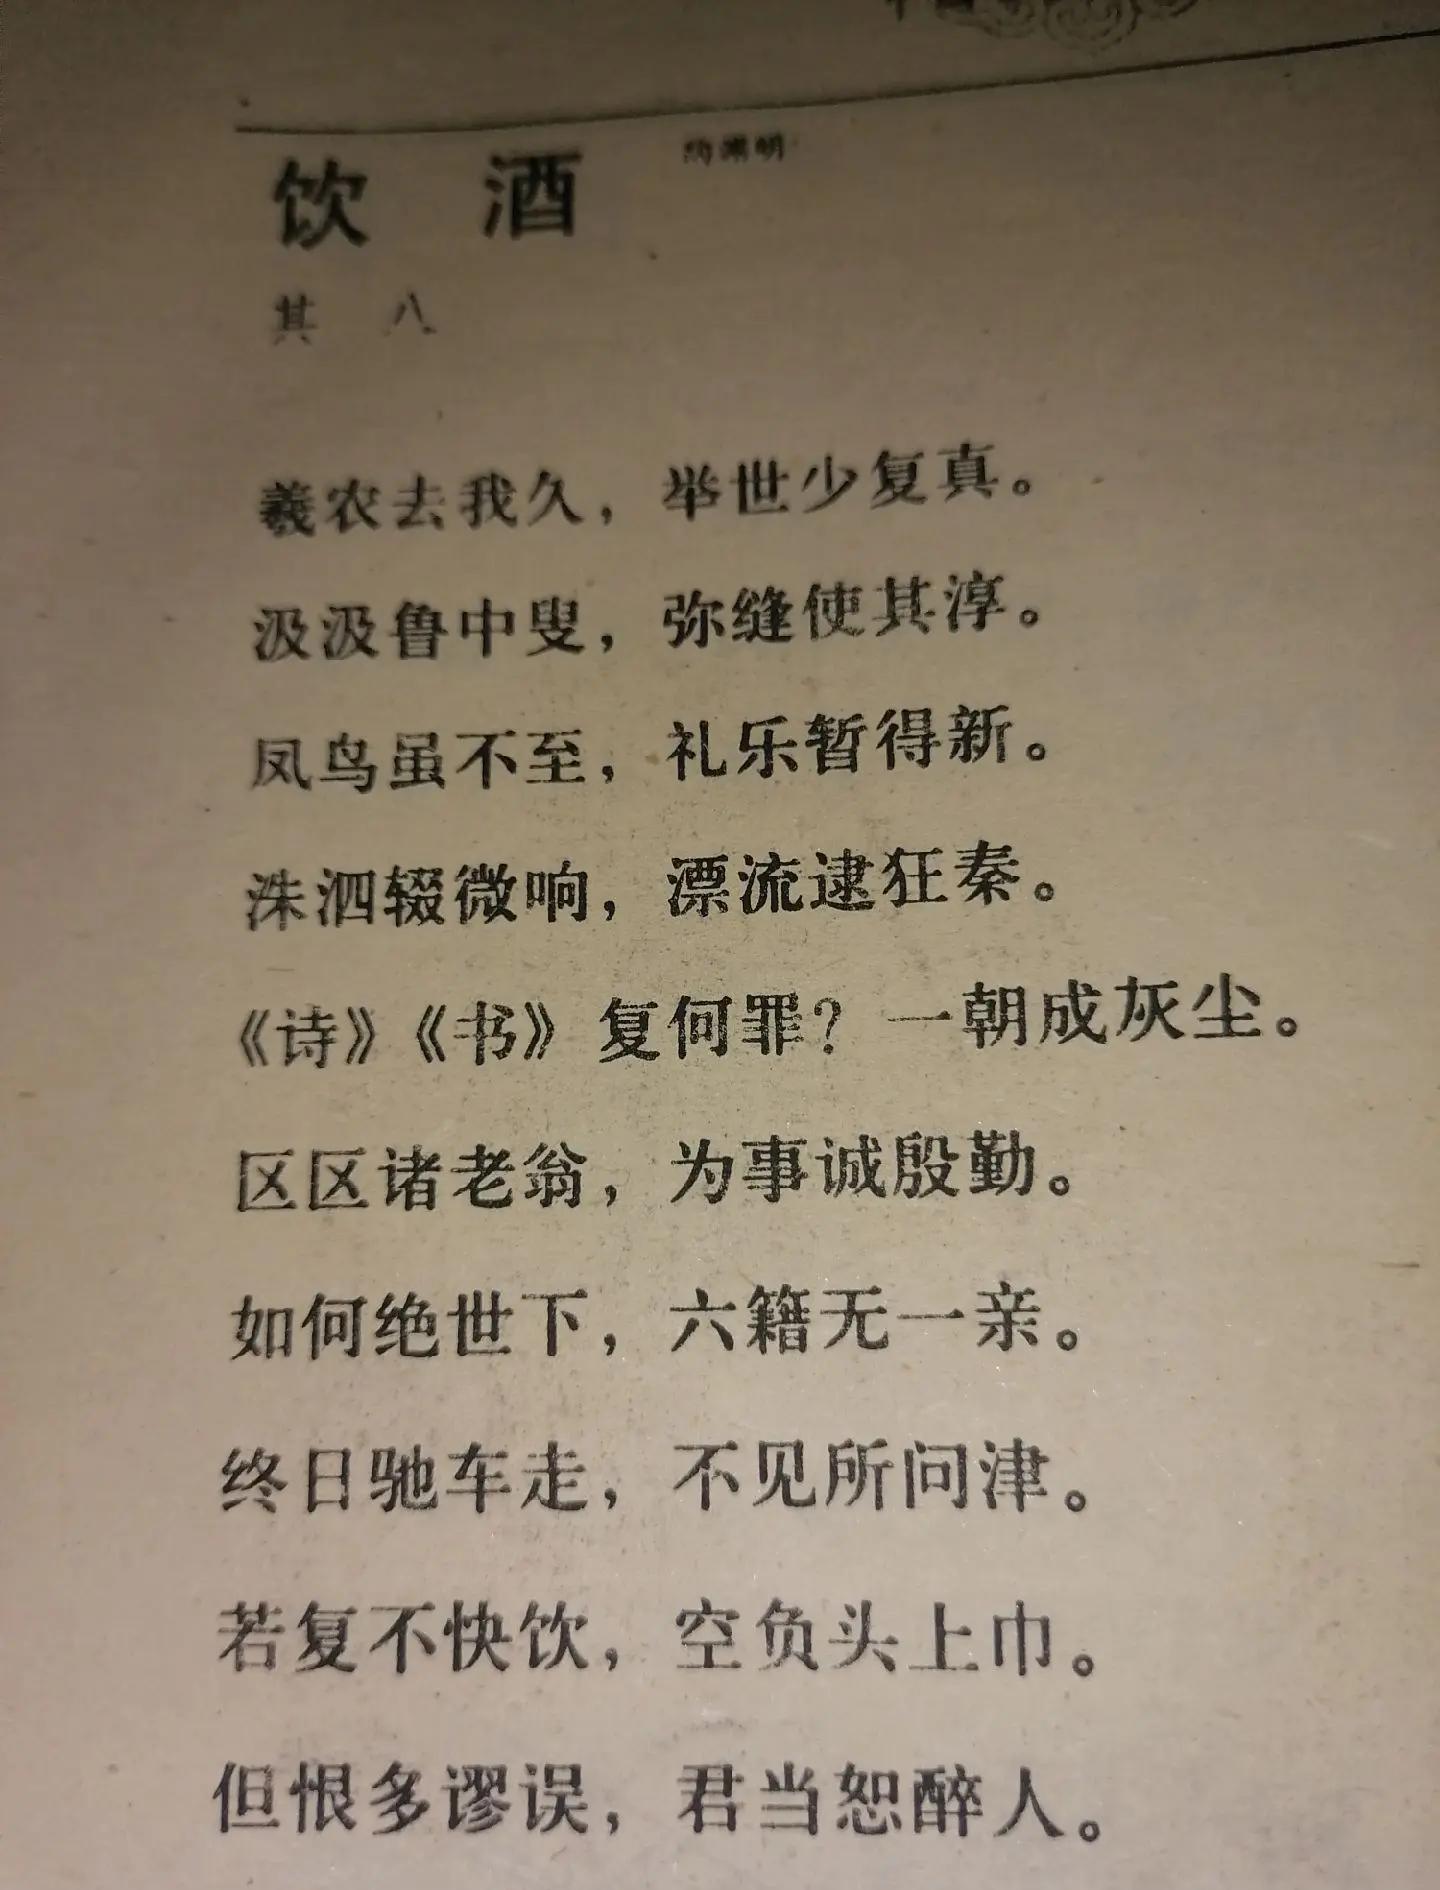 饮 酒 陶渊明
其 八
羲农去我久，举世少复真。
汲汲鲁中叟，弥缝使其淳。
凤鸟虽不至，礼乐暂得新。
洙泗辍微响，漂流逮狂秦。
《诗》《书》复何罪？一朝成灰尘。
区区诸老翁，为事诚殷勤。
如何绝世下，六籍无一亲。
终日驰车走，不见所问津。
若复不快饮，空负头上巾。
但恨多谬误，君当恕醉人。